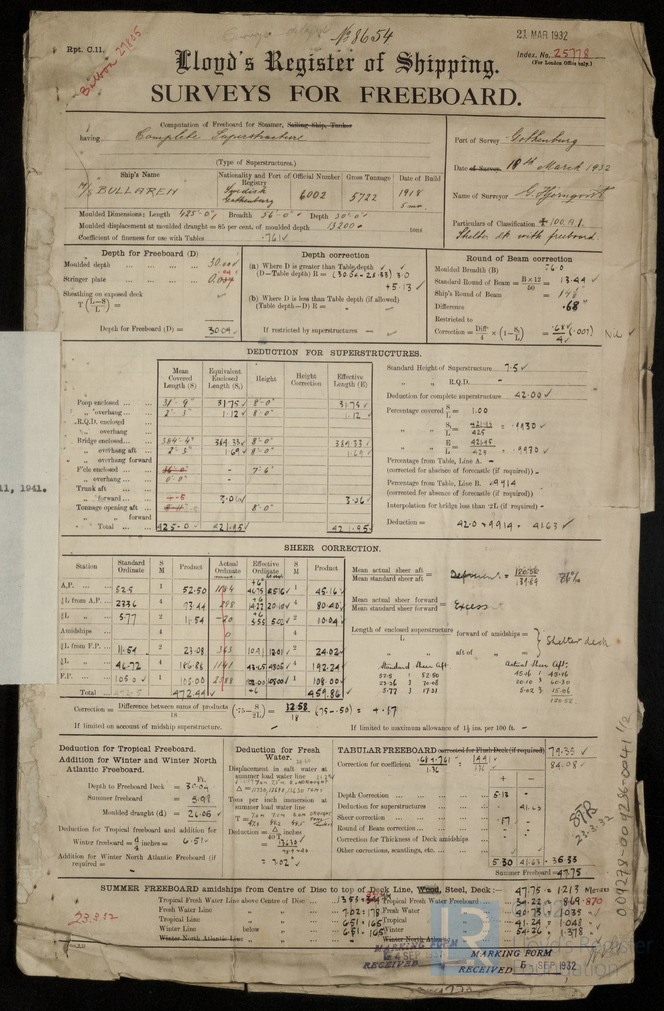 No 8654
23 MAR 1932
Rpt. C.11.
Index. No. 25778
(For London Office only.)
Lloyd's Register of Shipping.
SURVEYS FOR FREEBOARD.
Computation of Freeboard for Steamer, Sailing Ship, Tanker
having Complete Superstructure
(Type of Superstructures.)
Port of Survey Gothenburg
Date of Survey 18th March 1932
Name of Surveyor
Particulars of Classification +100.A.1.
Shelter dk with freeboard
Ship's Name
Nationality and Port of Registry
Official Number
Gross Tonnage
Date of Build
M/S BULLAREN
Swedish
Gothenburg
6002
5722
1918
5 mo.
Moulded Dimensions: Length 425'-0" Breadth 56'-0" Depth 30'-0"
Moulded displacement at moulded draught = 85 per cent. of moulded depth 13200 tons
Coefficient of fineness for use with Tables .761
Depth for Freeboard (D)
Moulded depth 30.00
Stringer plate
Sheathing on exposed deck
T (L-S/L) =
Depth for Freeboard (D) = 30.04
Depth correction
(a) Where D is greater than Table depth
(D-Table depth) R = (30.04-28.33) 3.0
+5.13
(b) Where D is less than Table depth (if allowed)
(Table depth-D) R =
If restricted by superstructures
Round of Beam correction
Moulded Breadth (B) 56.0
Standard Round of Beam = B×12/50 = 13.44
Ship's Round of Beam =
Difference .68"
Restricted to
Correction = Diff./4 × (1-S₁/L) Nil
DEDUCTION FOR SUPERSTRUCTURES.
Mean Covered Length (S)
Equivalent Enclosed Length (S₁)
Height
Height Correction
Effective Length (E)
Poop enclosed 31'-9" 31.75 8'-0" 31.75
" overhang 2'-3" 1.12 8'-0" 1.12
R.Q.D. enclosed
" overhang
Bridge enclosed 384'-4" 384.33 8'-0" 384.33
" overhang aft 2'-3" 1.69 8'-0" 1.69
" overhang forward
F'cle enclosed 7'-6"
" overhang
Trunk aft
" forward 3.06 3.06
Tonnage opening aft 8'-0"
" " forward
" Total 425-0 421.95 421.95
Standard Height of Superstructure 7.5
" " R.Q.D. -
Deduction for complete superstructure 42.00
Percentage covered S/L = 1.00
" " S₁/L = 421.95/425 = .9930
" " E/L = 421.95/425 = .9930
Percentage from Table, Line A. -
(corrected for absence of forecastle (if required)) -
Percentage from Table, Line B. .9914
(corrected for absence of forecastle (if required))
Interpolation for bridge less than .2L (if required) -
Deduction = 42.0 × .9914 = 41.63
11, 1941.
SHEER CORRECTION.
Station
Standard Ordinate
S M
Product
Actual Ordinate
Effective Ordinate
S M
Product
A.P. 52.5 1 52.50 45.16 1 45.16
¼L from A.P. 23.36 4 93.44 20.10 4 80.40
⅛L " 5.77 2 11.54 5.02 2 10.04
Amidships 4 0 4
⅛L from F.P. 11.54 2 23.08 12.01 2 24.02
¼L " 46.72 4 186.88 4 192.24
F.P. 105.0 1 105.00 1 108.00
Total 472.44 459.86
Mean actual sheer aft / Mean standard sheer aft = Deficient = 120.52/139.89 86%
Mean actual sheer forward / Mean standard sheer forward = Excess
Length of enclosed superstructure / L forward of amidships =
" " aft of " =
Shelter deck
Standard Sheer Aft.
52.5 1 52.50
23.36 3 70.08
5.77 3 17.31
Actual Sheer Aft:
45.16 1 45.16
20.10 3 60.30
5.02 3 15.06
120.52
Correction = Difference between sums of products/18 (.75-S/2L) = 12.58/18 (.75-.50) = +.17
If limited on account of midship superstructure.
If limited to maximum allowance of 1½ ins. per 100 ft. -
Deduction for Tropical Freeboard.
Addition for Winter and Winter North Atlantic Freeboard.
Ft.
Depth to Freeboard Deck = 30.04
Summer freeboard = 3.98
Moulded draught (d) = 26.06
Deduction for Tropical freeboard and addition for Winter freeboard = d/4 inches = 6.51
Addition for Winter North Atlantic Freeboard (if required) =
Deduction for Fresh Water.
Displacement in salt water at summer load water line
Δ =
Tons per inch immersion at summer load water line
T =
Deduction = Δ/40T inches
= 7.02"
TABULAR FREEBOARD corrected for Flush Deck (if required) 79.35
Correction for coefficient .68+.761/1.36 = 1.441/1.36 84.08
+ -
Depth Correction 5.13 -
Deduction for superstructures - 41.63
Sheer correction .17 -
Round of Beam correction - -
Correction for Thickness of Deck amidships - -
Other corrections, scantlings, etc. - -
5.30 41.63 = 36.33
Summer Freeboard = 47.75
STR
23.3.32
SUMMER FREEBOARD amidships from Centre of Disc to top of Deck Line, Wood, Steel, Deck:- 47.75 = 1213 Metres
Tropical Fresh Water Line above Centre of Disc 13.53 = 344
Fresh Water Line " " 7.02 = 178
Tropical Line " " 6.51 = 165
Winter Line below " 6.51 = 165
Winter North Atlantic Line " "
Tropical Fresh Water Freeboard 34.22 = .869 .870
Fresh Water " 40.73 = 1.035
Tropical " 41.24 = 1.048
Winter " 54.26 = 1.378
Winter North Atlantic "
23.3.32
MARKING FORM
RECEIVED
MARKING FORM
RECEIVED 5 SEP 1932
LR
Lloyd's Register
Foundation
009278-009286-0041 1/2